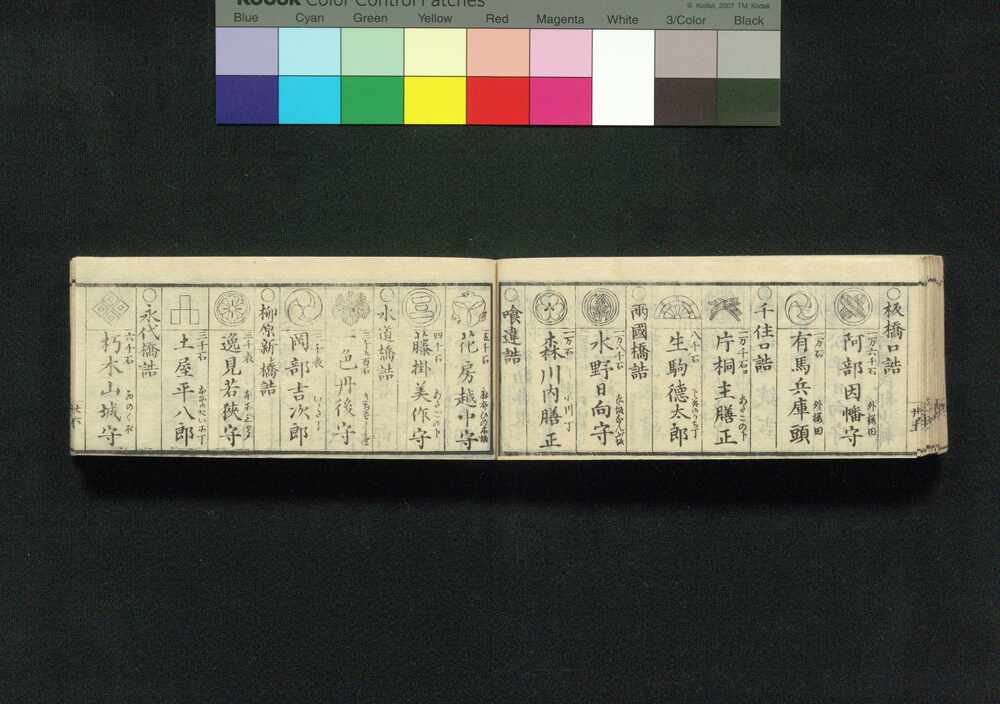 KODAK Color Control Patches
© Kodak, 2007 TM: Kodak
Blue Cyan Green Yellow Red Magenta White 3/Color Black
○板橋口詰
一万六千石
阿部因幡守
外桜田
一万石
有馬兵庫頭
外桜田
○千住口詰
一万千石
片桐主膳正
あたこの下
八千石
生駒徳太郎
○兩國橋詰
一万八千石
水野日向守
一万石
森川内膳正
小川丁
○喰違詰
五千石
花房越中守
四千石
藤掛美作守
あたこの下
○水道橋詰
一色丹後守
三千表
岡部吉次郎
○柳原新橋詰
三千表
逸見若狹守
三千石
土屋平八郎
○永代橋詰
六千石
朽木山城守